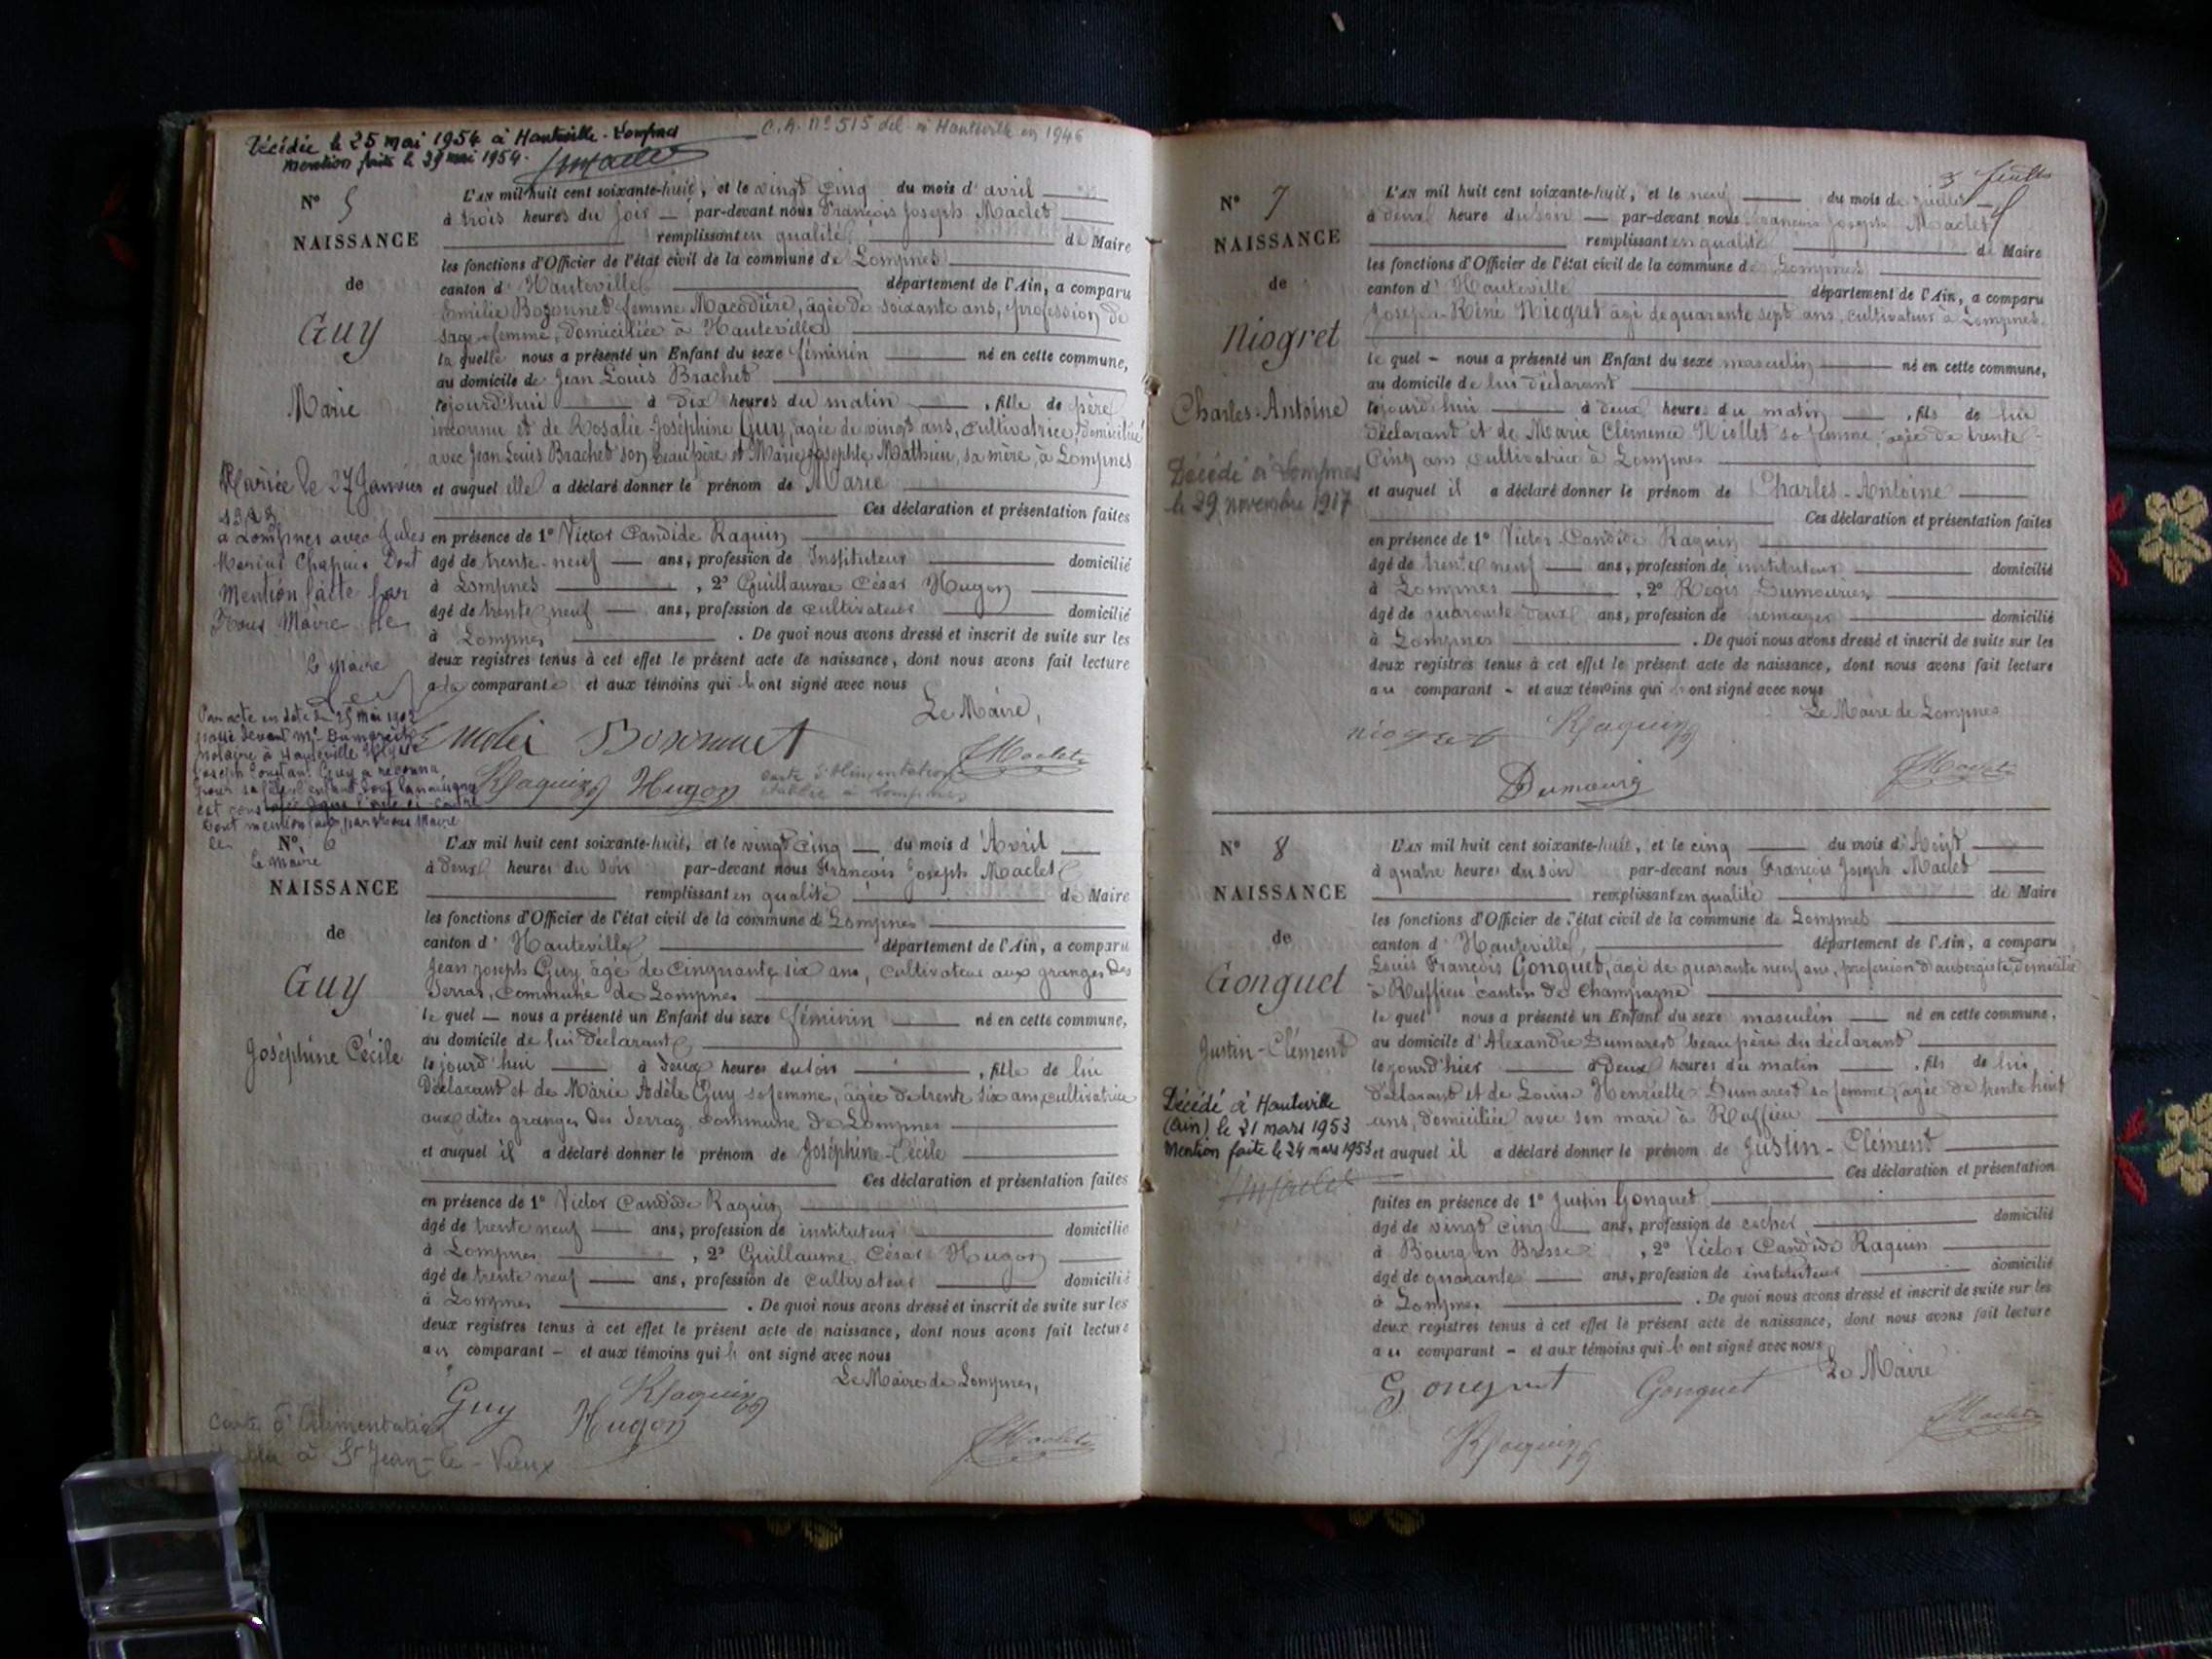 Décédée le 25 mai 1954 à Hauteville-Lompnes
mention faite le 29 mai 1954.
C.A. N° 515 dél à Hauteville en 1946
N° 5
NAISSANCE
de
Guy
Marie
Mariée le 27 Janvier
à Lompnes avec Jules
Chapuis Dont
Mention faite par
Nous Maire
le Maire
Par acte en date du 25 mai 1902
passé devant Me Dumarest
notaire à Hauteville
Joseph Constant Guy a reconnu
pour sa fille l'enfant dont la naissance
est constatée dans l'acte ci-contre
dont mention faite par Nous Maire
L'AN mil huit cent soixante-huit, et le vingt cinq du mois d'avril
à trois heures du soir par-devant nous François Joseph Maclet
remplissant en qualité de Maire
les fonctions d'Officier de l'état civil de la commune de Lompnes
canton d'Hauteville département de l'Ain, a comparu
Emilie Bozonnet femme Macodière, âgée de soixante ans, profession de
sage-femme, domiciliée à Hauteville
laquelle nous a présenté un Enfant du sexe féminin né en cette commune,
au domicile de Jean Louis Brachet
cejourd'hui à dix heures du matin, fille de père
inconnu et de Rosalie-Joséphine Guy, âgée de vingt ans, cultivatrice, domiciliée
avec Jean Louis Brachet son beau père et Marie Josephte Mathieu, sa mère, à Lompnes
et auquel elle a déclaré donner le prénom de Marie
Ces déclaration et présentation faites
en présence de 1° Victor Candide Raquin
âgé de trente-neuf ans, profession de Instituteur domicilié
à Lompnes, 2° Guillaume César Hugon
âgé de trente neuf ans, profession de cultivateur domicilié
à Lompnes. De quoi nous avons dressé et inscrit de suite sur les
deux registres tenus à cet effet le présent acte de naissance, dont nous avons fait lecture
à la comparante et aux témoins qui ont signé avec nous
Le Maire,
Emilie Bozonnet
Raquin Hugon
FMaclet
Carte d'Alimentation
établie à Lompnes
N° 6
le Maire
NAISSANCE
de
Guy
Joséphine Cécile
L'AN mil huit cent soixante-huit, et le vingt cinq du mois d'Avril
à deux heures du soir par-devant nous François Joseph Maclet
remplissant en qualité de Maire
les fonctions d'Officier de l'état civil de la commune de Lompnes
canton d'Hauteville département de l'Ain, a comparu
Jean Joseph Guy âgé de cinquante six ans, cultivateur aux granges des
Terras, commune de Lompnes
lequel nous a présenté un Enfant du sexe féminin né en cette commune,
au domicile de lui déclarant
cejourd'hui à deux heures du soir, fille de lui
déclarant et de Marie Adèle Guy sa femme, âgée de trente six ans, cultivatrice
aux dites granges des Terras commune de Lompnes
et auquel il a déclaré donner le prénom de Joséphine-Cécile
Ces déclaration et présentation faites
en présence de 1° Victor Candide Raquin
âgé de trente neuf ans, profession de instituteur domicilié
à Lompnes, 2° Guillaume César Hugon
âgé de trente neuf ans, profession de cultivateur domicilié
à Lompnes. De quoi nous avons dressé et inscrit de suite sur les
deux registres tenus à cet effet le présent acte de naissance, dont nous avons fait lecture
au comparant et aux témoins qui ont signé avec nous
Le Maire de Lompnes,
Guy Raquin
Hugon
FMaclet
Carte d'Alimentation
à St Jean-le-Vieux
N° 7
NAISSANCE
de
Niogret
Charles-Antoine
Décédé à Lompnes
le 29 novembre 1917
L'AN mil huit cent soixante-huit, et le neuf du mois de juillet
à deux heure du soir par-devant nous François Joseph Maclet
remplissant en qualité de Maire
les fonctions d'Officier de l'état civil de la commune de Lompnes
canton d'Hauteville département de l'Ain, a comparu
Joseph-Réné Niogret âgé de quarante sept ans, cultivateur à Lompnes.
lequel nous a présenté un Enfant du sexe masculin né en cette commune,
au domicile de lui déclarant
cejourd'hui à deux heures du matin, fils de lui
déclarant et de Marie Clémence Niollet sa femme, âgée de trente-
cinq ans, cultivatrice à Lompnes
et auquel il a déclaré donner le prénom de Charles-Antoine
Ces déclaration et présentation faites
en présence de 1° Victor-Candide Raquin
âgé de trente neuf ans, profession de instituteur domicilié
à Lompnes, 2° Régis Dumourier
âgé de quarante deux ans, profession de domicilié
à Lompnes. De quoi nous avons dressé et inscrit de suite sur les
deux registres tenus à cet effet le présent acte de naissance, dont nous avons fait lecture
au comparant et aux témoins qui ont signé avec nous
Le Maire de Lompnes
niogret Raquin
FMaclet
N° 8
NAISSANCE
de
Gonguet
Justin-Clément
Décédé à Hauteville
(Ain) le 21 mars 1953
Mention faite le 24 mars 1953
L'AN mil huit cent soixante-huit, et le cinq du mois d'Août
à quatre heures du soir par-devant nous François Joseph Maclet
remplissant en qualité de Maire
les fonctions d'Officier de l'état civil de la commune de Lompnes
canton d'Hauteville, département de l'Ain, a comparu
Louis François Gonguet, âgé de quarante neuf ans, profession d'aubergiste, domicilié
à Ruffieu canton de Champagne
lequel nous a présenté un Enfant du sexe masculin né en cette commune,
au domicile d'Alexandre Dumarest beau père du déclarant
lejourd'hier à deux heures du matin, fils de lui
déclarant et de Louise Henriette Dumarest sa femme, âgée de trente huit
ans, domiciliée avec son mari à Ruffieu
et auquel il a déclaré donner le prénom de Justin-Clément
Ces déclaration et présentation
faites en présence de 1° Justin Gonguet
âgé de vingt cinq ans, profession de cocher domicilié
à Bourg en Bresse, 2° Victor Candide Raquin
âgé de quarante ans, profession de instituteur domicilié
à Lompnes. De quoi nous avons dressé et inscrit de suite sur les
deux registres tenus à cet effet le présent acte de naissance, dont nous avons fait lecture
au comparant et aux témoins qui ont signé avec nous
Le Maire
Gonguet Gonguet
Raquin
FMaclet